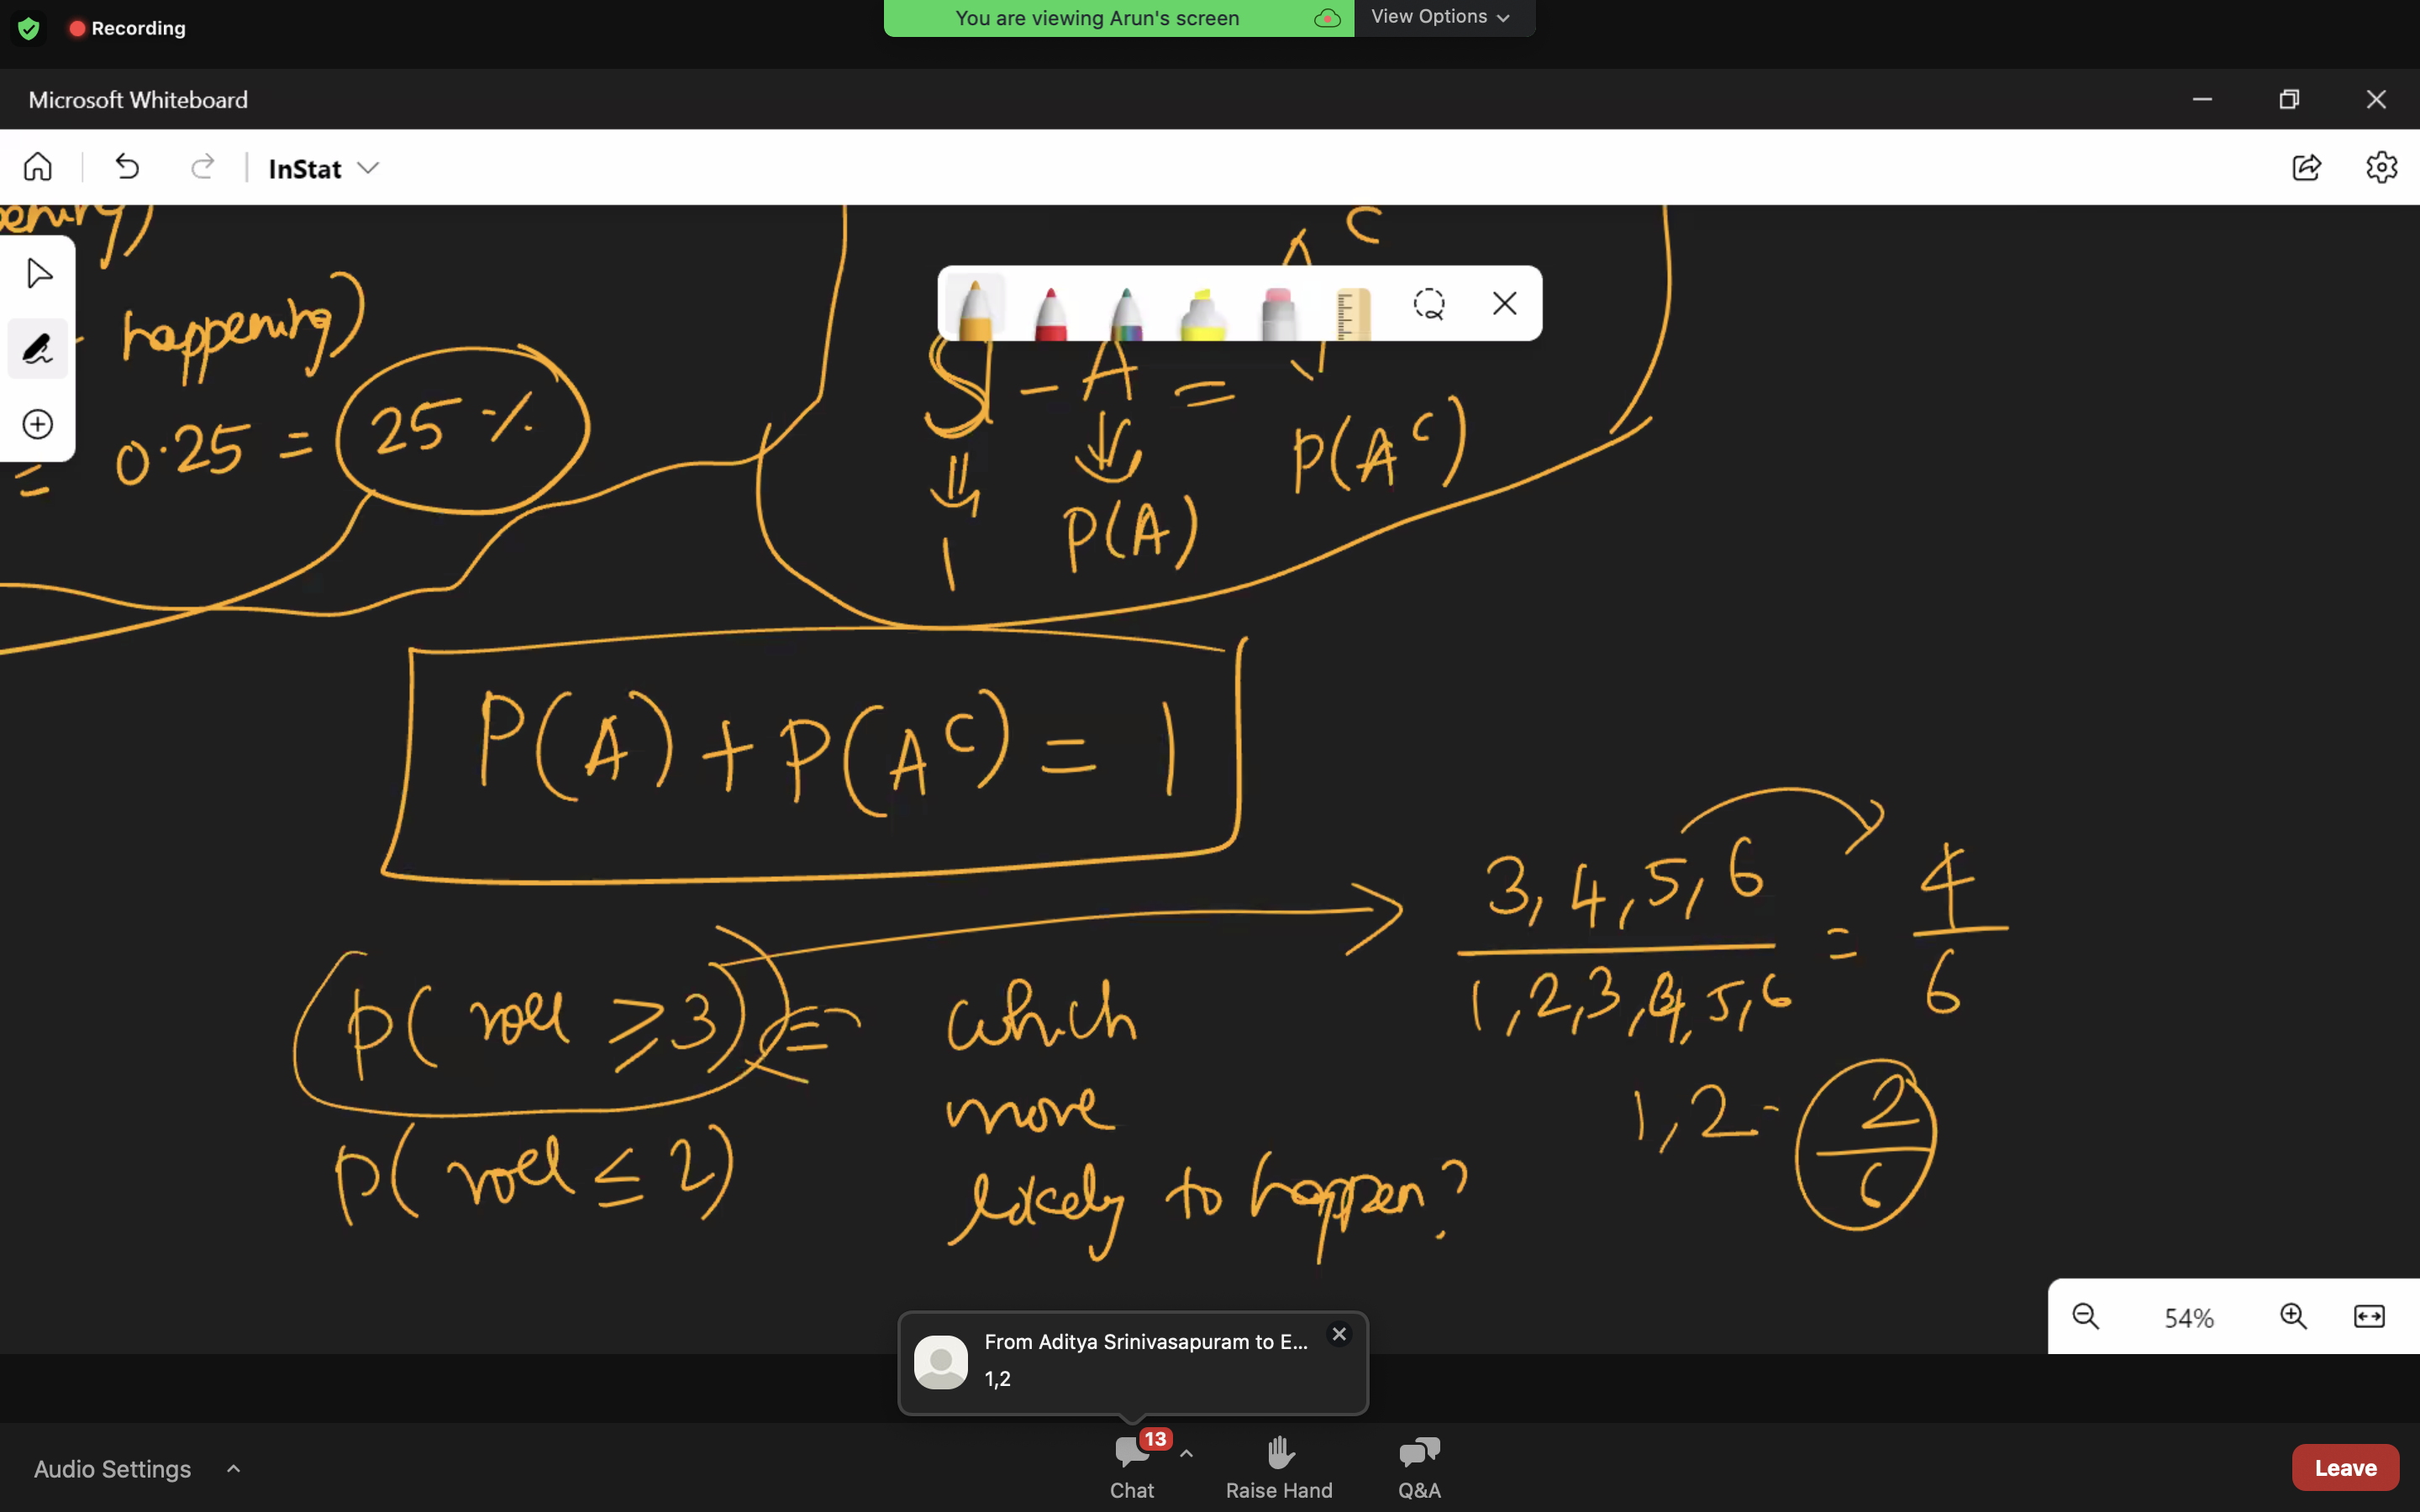 Recording
You are viewing Arun's screen
View Options
Microsoft Whiteboard
InStat
happening)
= 0.25 = 25 %
C
S - A =
P(Aᶜ)
P(A)
1
P(A) + P(Aᶜ) = 1
3, 4, 5, 6
1, 2, 3, 4, 5, 6
= 4
6
P( roll ≥ 3) =
which
more
likely to happen?
P( roll ≤ 2)
1, 2 - 2
6
54%
From Aditya Srinivasapuram to E...
1,2
13
Audio Settings
Chat
Raise Hand
Q&A
Leave